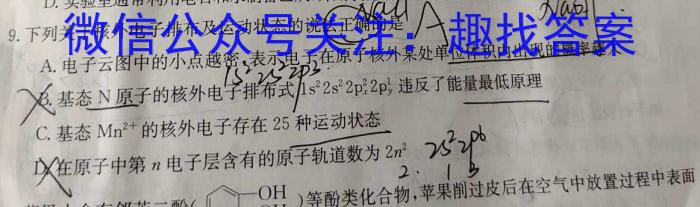 D. 实验室通常利用电
NaOH A NaOH
9. 下列关于核外电子排布及运动状态的说法正确的是
微信公众号关注：趣找答案
A. 电子云图中的小点越密,表示电子在原子核外某处单位体积内出现的概率越
1s²2s²2p³
B. 基态 N 原子的核外电子排布式 1s²2s²2pₓ²2pᵧ¹ 违反了能量最低原理
C. 基态 Mn²⁺ 的核外电子存在 25 种运动状态
D. 在原子中第 n 电子层含有的原子轨道数为 2n²
2s²2p⁶
2. 1 3
OH
OH
)等酚类化合物,苹果削过皮后在空气中放置过程中表面